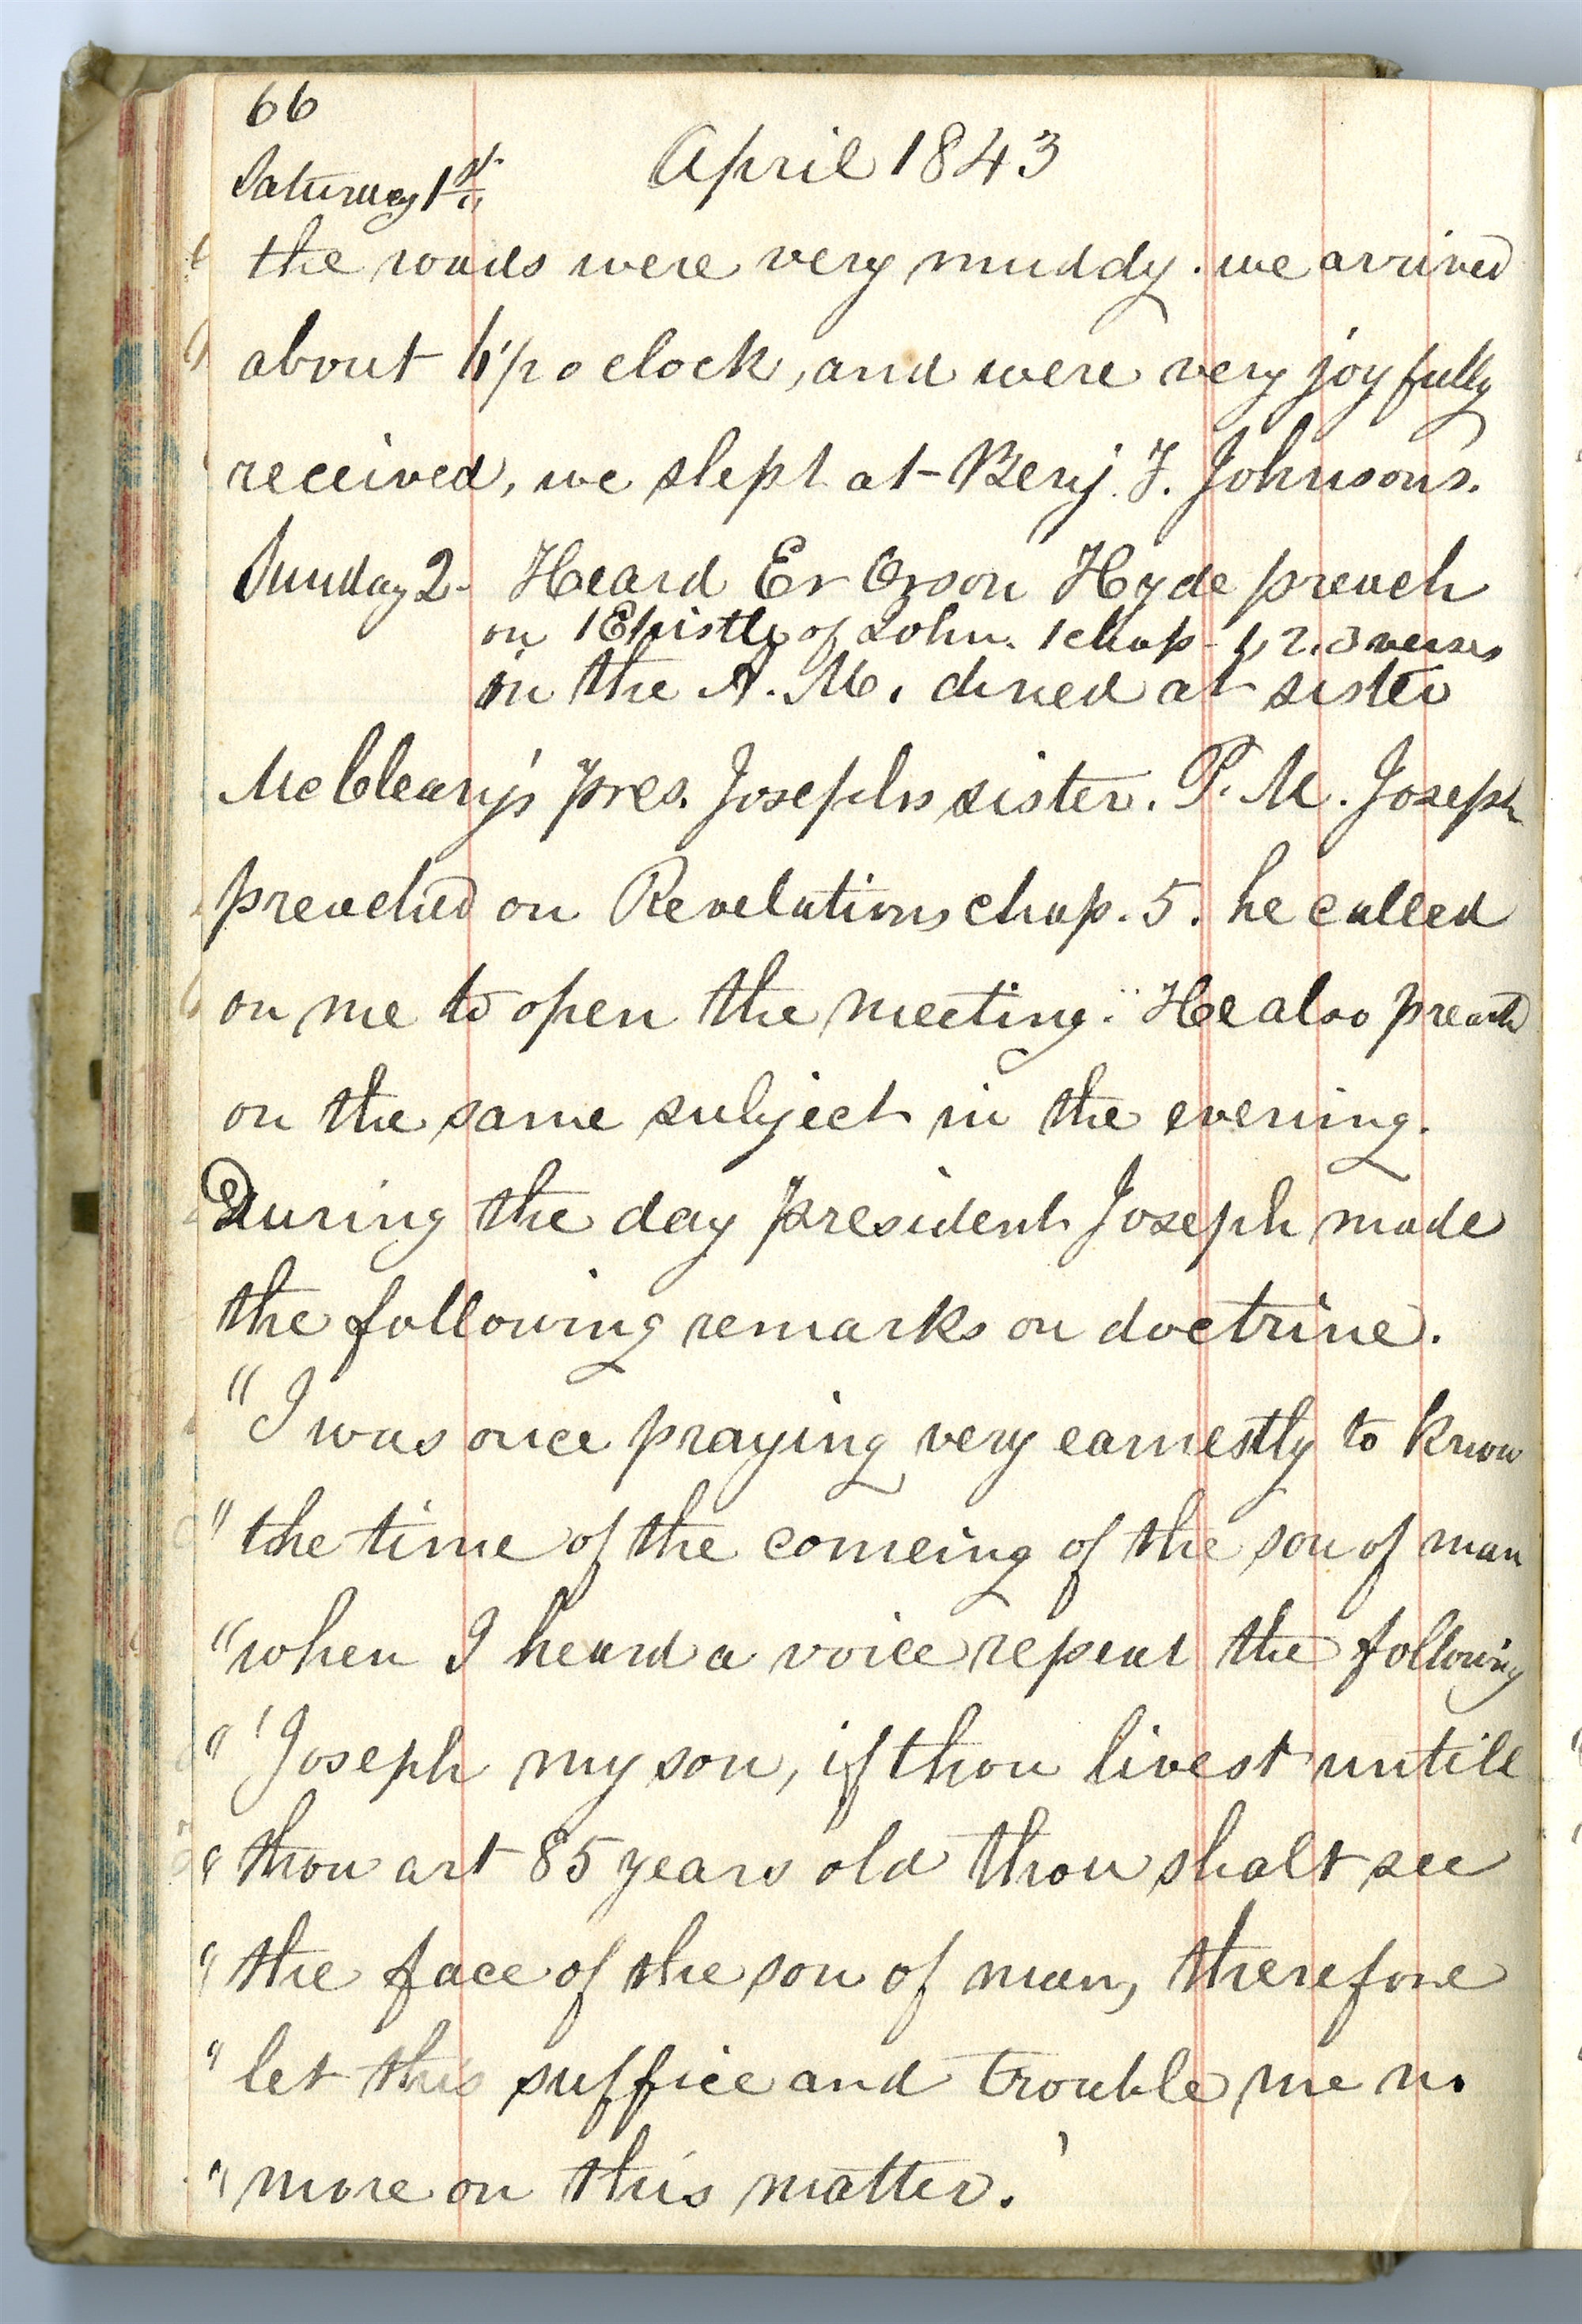 66
April 1843
Saturday 1st
the roads were very muddy. we arrived
about 6 1/2 o clock, and were very joyfully
received, we slept at Benj. F. Johnsons.
Sunday 2. Heard Er Orson Hyde preach
on 1 Epistle of John. 1 chap - 1, 2, 3 verses
in the A. M. dined at sister
McCleary's pres. Josephs sister. P. M. Joseph
preached on Revelations chap. 5. he called
on me to open the meeting. He also preachd
on the same subject in the evening.
During the day president Joseph made
the following remarks on doctrine.
"I was once praying very earnestly to know
" the time of the comeing of the son of man
" when I heard a voice repeat the following
" 'Joseph my son, if thou livest untill
" thou art 85 years old thou shalt see
" the face of the son of man, therefore
" let this suffice and trouble me no
" more on this matter.'